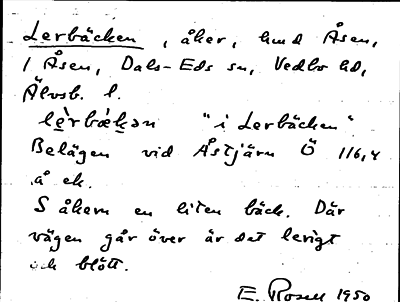 Lerbäcken, åker, hmd Åsen,
1 Åsen, Dals-Eds sn, Vedbo hd,
Älvsb. l.
lè̱rbæ̀ḵən "i Lerbäcken".
Belägen vid Åstjärn Ö 116,4
å ek.
S åkern en liten bäck. Där
vägen går över är det lerigt
och blött.
E. Rosell 1950